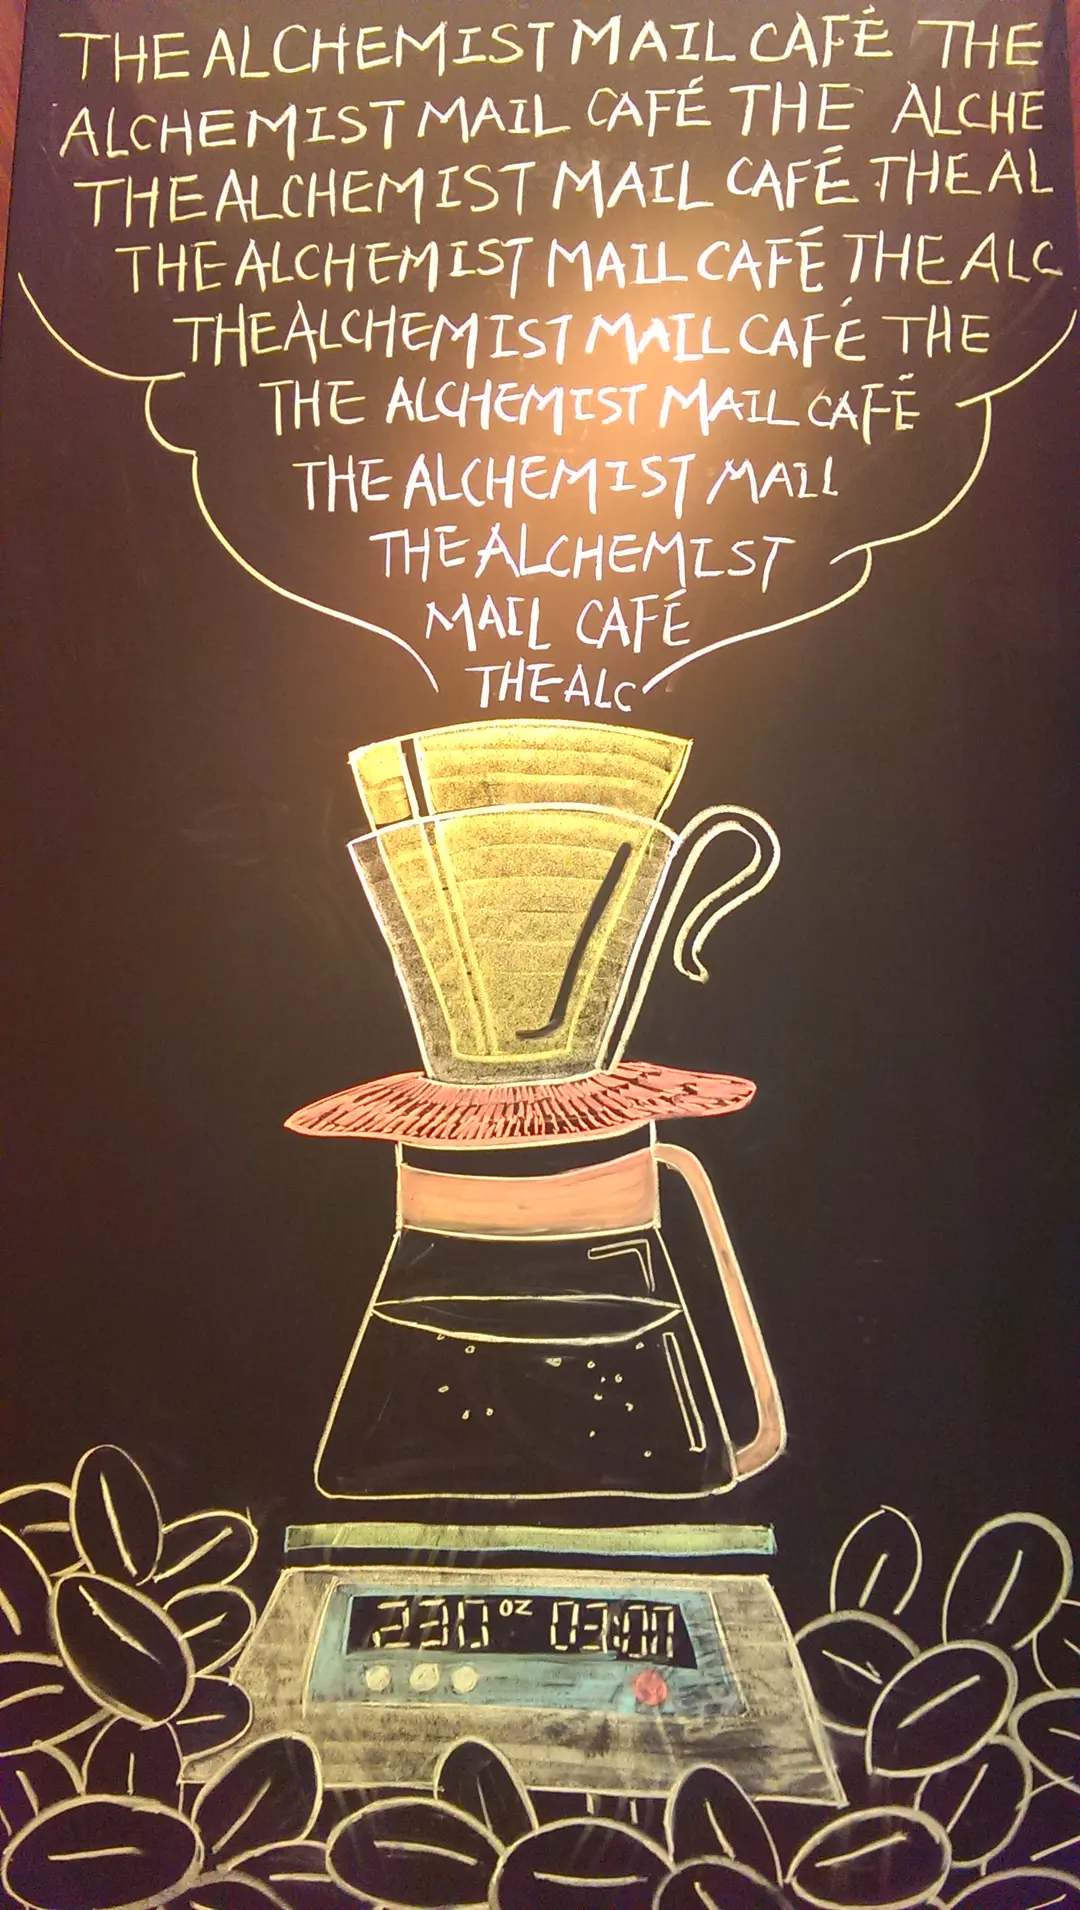 THE ALCHEMIST MAIL CAFÉ THE
ALCHEMIST MAIL CAFÉ THE ALCHE
THE ALCHEMIST MAIL CAFÉ THE AL
THE ALCHEMIST MAIL CAFÉ THE ALC
THE ALCHEMIST MAIL CAFÉ THE
THE ALCHEMIST MAIL CAFÉ
THE ALCHEMIST MAIL
THE ALCHEMIST
MAIL CAFÉ
THE ALC
230 oz 03:00